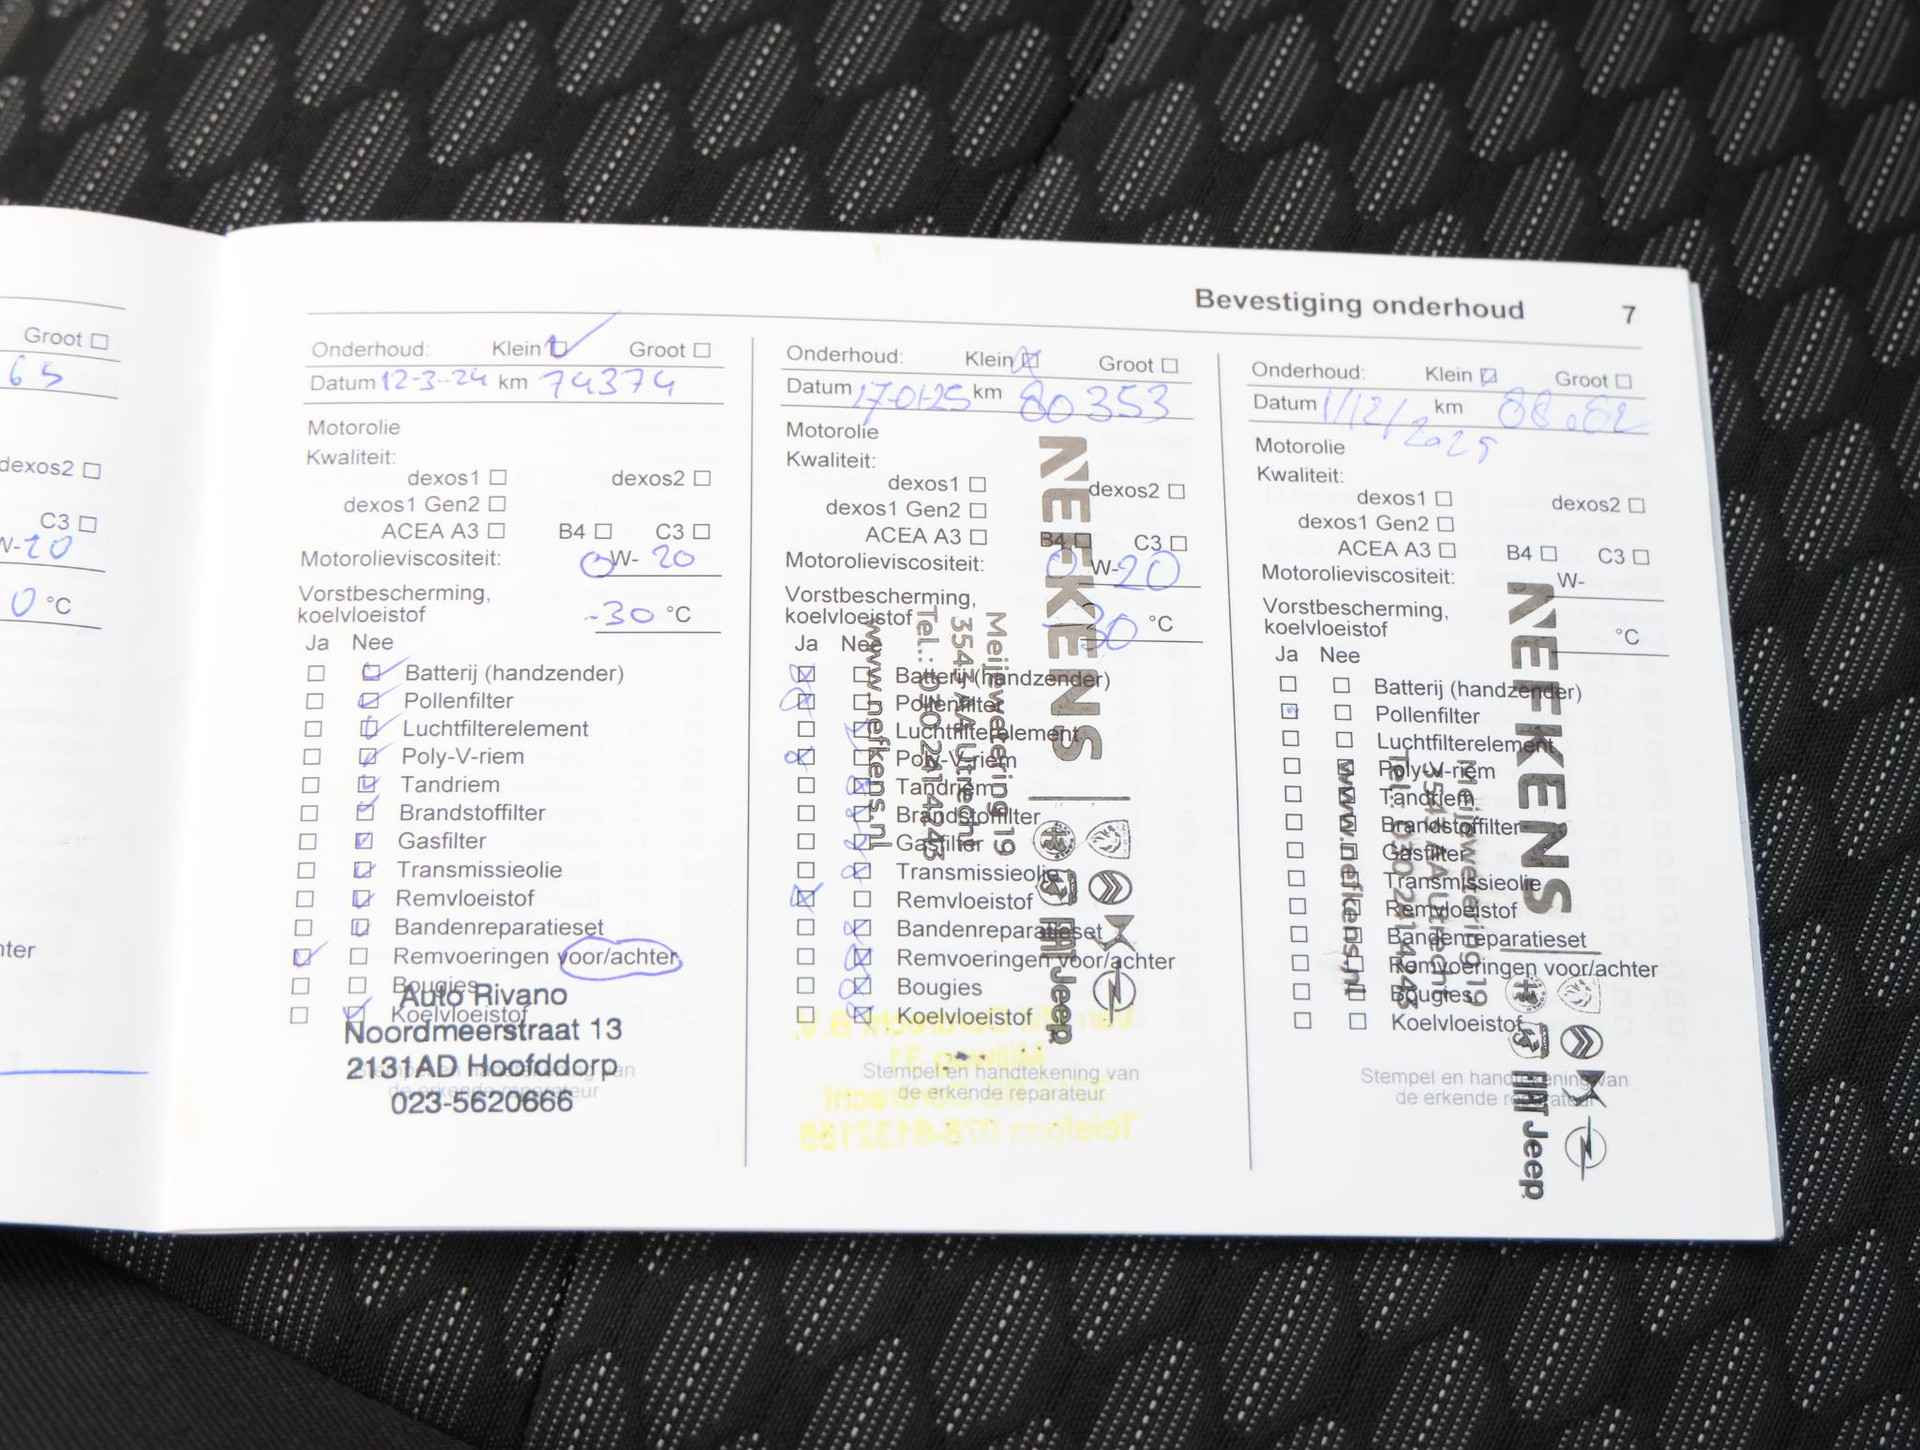 Groot
65
dexos2
C3
W-20
0 °C
hter
Bevestiging onderhoud 7
Onderhoud: Klein Groot
Datum 12-3-24 km 74374
Motorolie
Kwaliteit:
dexos1 dexos2
dexos1 Gen2
ACEA A3 B4 C3
Motorolieviscositeit: 0 W- 20
Vorstbescherming,
koelvloeistof -30 °C
Ja Nee
Batterij (handzender)
Pollenfilter
Luchtfilterelement
Poly-V-riem
Tandriem
Brandstoffilter
Gasfilter
Transmissieolie
Remvloeistof
Bandenreparatieset
Remvoeringen voor/achter
Bougies
Koelvloeistof
Auto Rivano
Noordmeerstraat 13
2131AD Hoofddorp
023-5620666
Stempel en handtekening van
de erkende reparateur
Onderhoud: Klein Groot
Datum 17-01-25 km 80353
Motorolie
Kwaliteit:
dexos1 dexos2
dexos1 Gen2
ACEA A3 B4 C3
Motorolieviscositeit: 0 W- 20
Vorstbescherming,
koelvloeistof -30 °C
Ja Nee
Batterij (handzender)
Pollenfilter
Luchtfilterelement
Poly-V-riem
Tandriem
Brandstoffilter
Gasfilter
Transmissieolie
Remvloeistof
Bandenreparatieset
Remvoeringen voor/achter
Bougies
Koelvloeistof
Stempel en handtekening van
de erkende reparateur
NEFKENS
Meijewetering 19
3543 AA Utrecht
Tel.: 030 241 4243
www.nefkens.nl
FIAT Jeep
Onderhoud: Klein Groot
Datum 1/12/2025 km
Motorolie
Kwaliteit:
dexos1 dexos2
dexos1 Gen2
ACEA A3 B4 C3
Motorolieviscositeit: W-
Vorstbescherming,
koelvloeistof °C
Ja Nee
Batterij (handzender)
Pollenfilter
Luchtfilterelement
Poly-V-riem
Tandriem
Brandstoffilter
Gasfilter
Transmissieolie
Remvloeistof
Bandenreparatieset
Remvoeringen voor/achter
Bougies
Koelvloeistof
Stempel en handtekening van
de erkende reparateur
NEFKENS
Meijewetering 19
3543 AA Utrecht
Tel.: 030 241 4243
www.nefkens.nl
FIAT Jeep